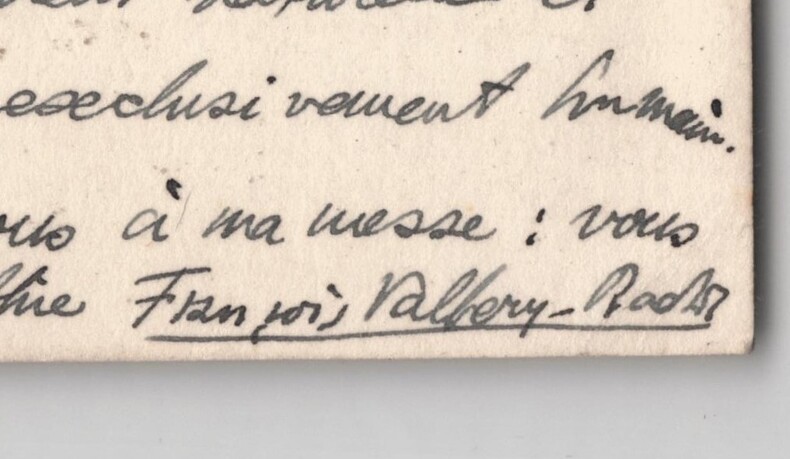 exclusivement humain.
à ma messe : vous
François Valléry-Radot